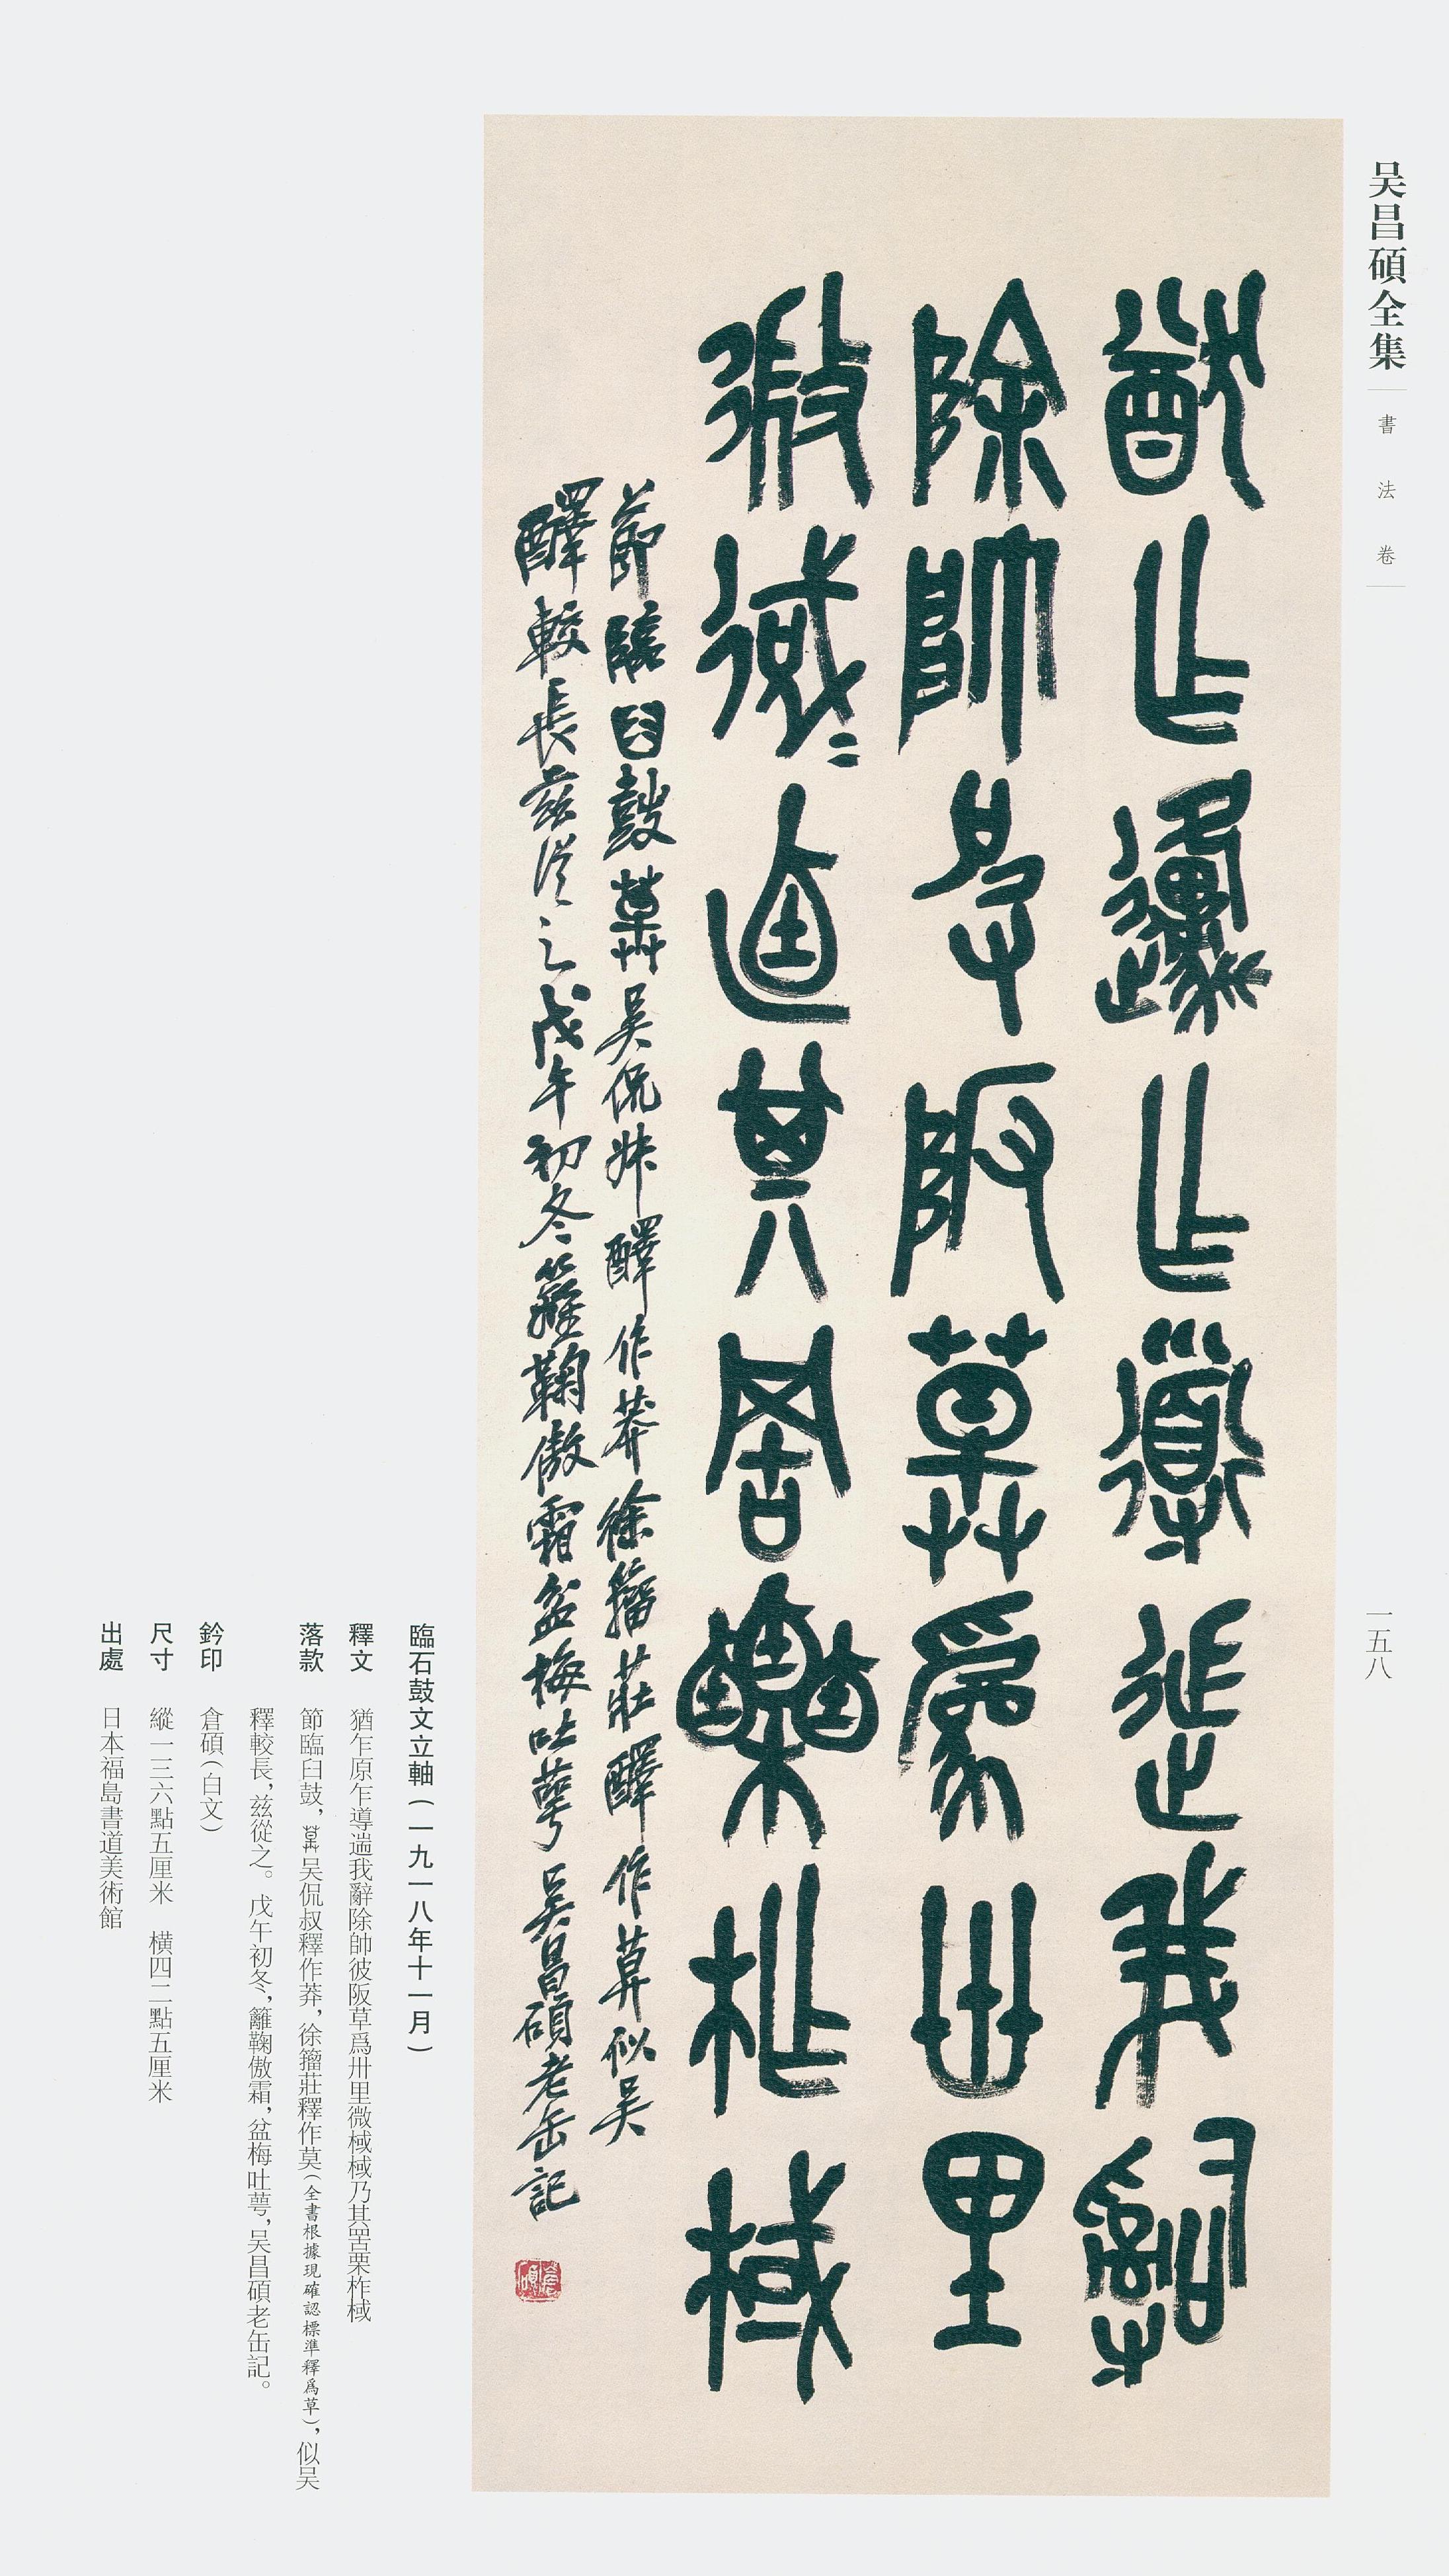 吴昌碩全集
書法卷
一五八
猷乍邍乍導遄我辭
除帥彼阪草爲卅里
微𢧢〻迺其周栗柞棫
節臨臼鼓𦱤吴侃叔釋作莽徐籀莊釋作莫似吴
釋較長兹從之戊午初冬籬鞠傲霜盆梅吐萼吴昌碩老缶記
倉碩
臨石鼓文立軸（一九一八年十一月）
釋文　猶乍原乍導遄我辭除帥彼阪草爲卅里微棫棫乃其罟栗柞棫
落款　節臨臼鼓，吴侃叔釋作莽，徐籀莊釋作莫（全書根據現確認標準釋爲草），似吴
釋較長，兹從之。戊午初冬，籬鞠傲霜，盆梅吐萼，吴昌碩老缶記。
鈐印　倉碩（白文）
尺寸　縱一三六點五厘米　橫四二點五厘米
出處　日本福島書道美術館